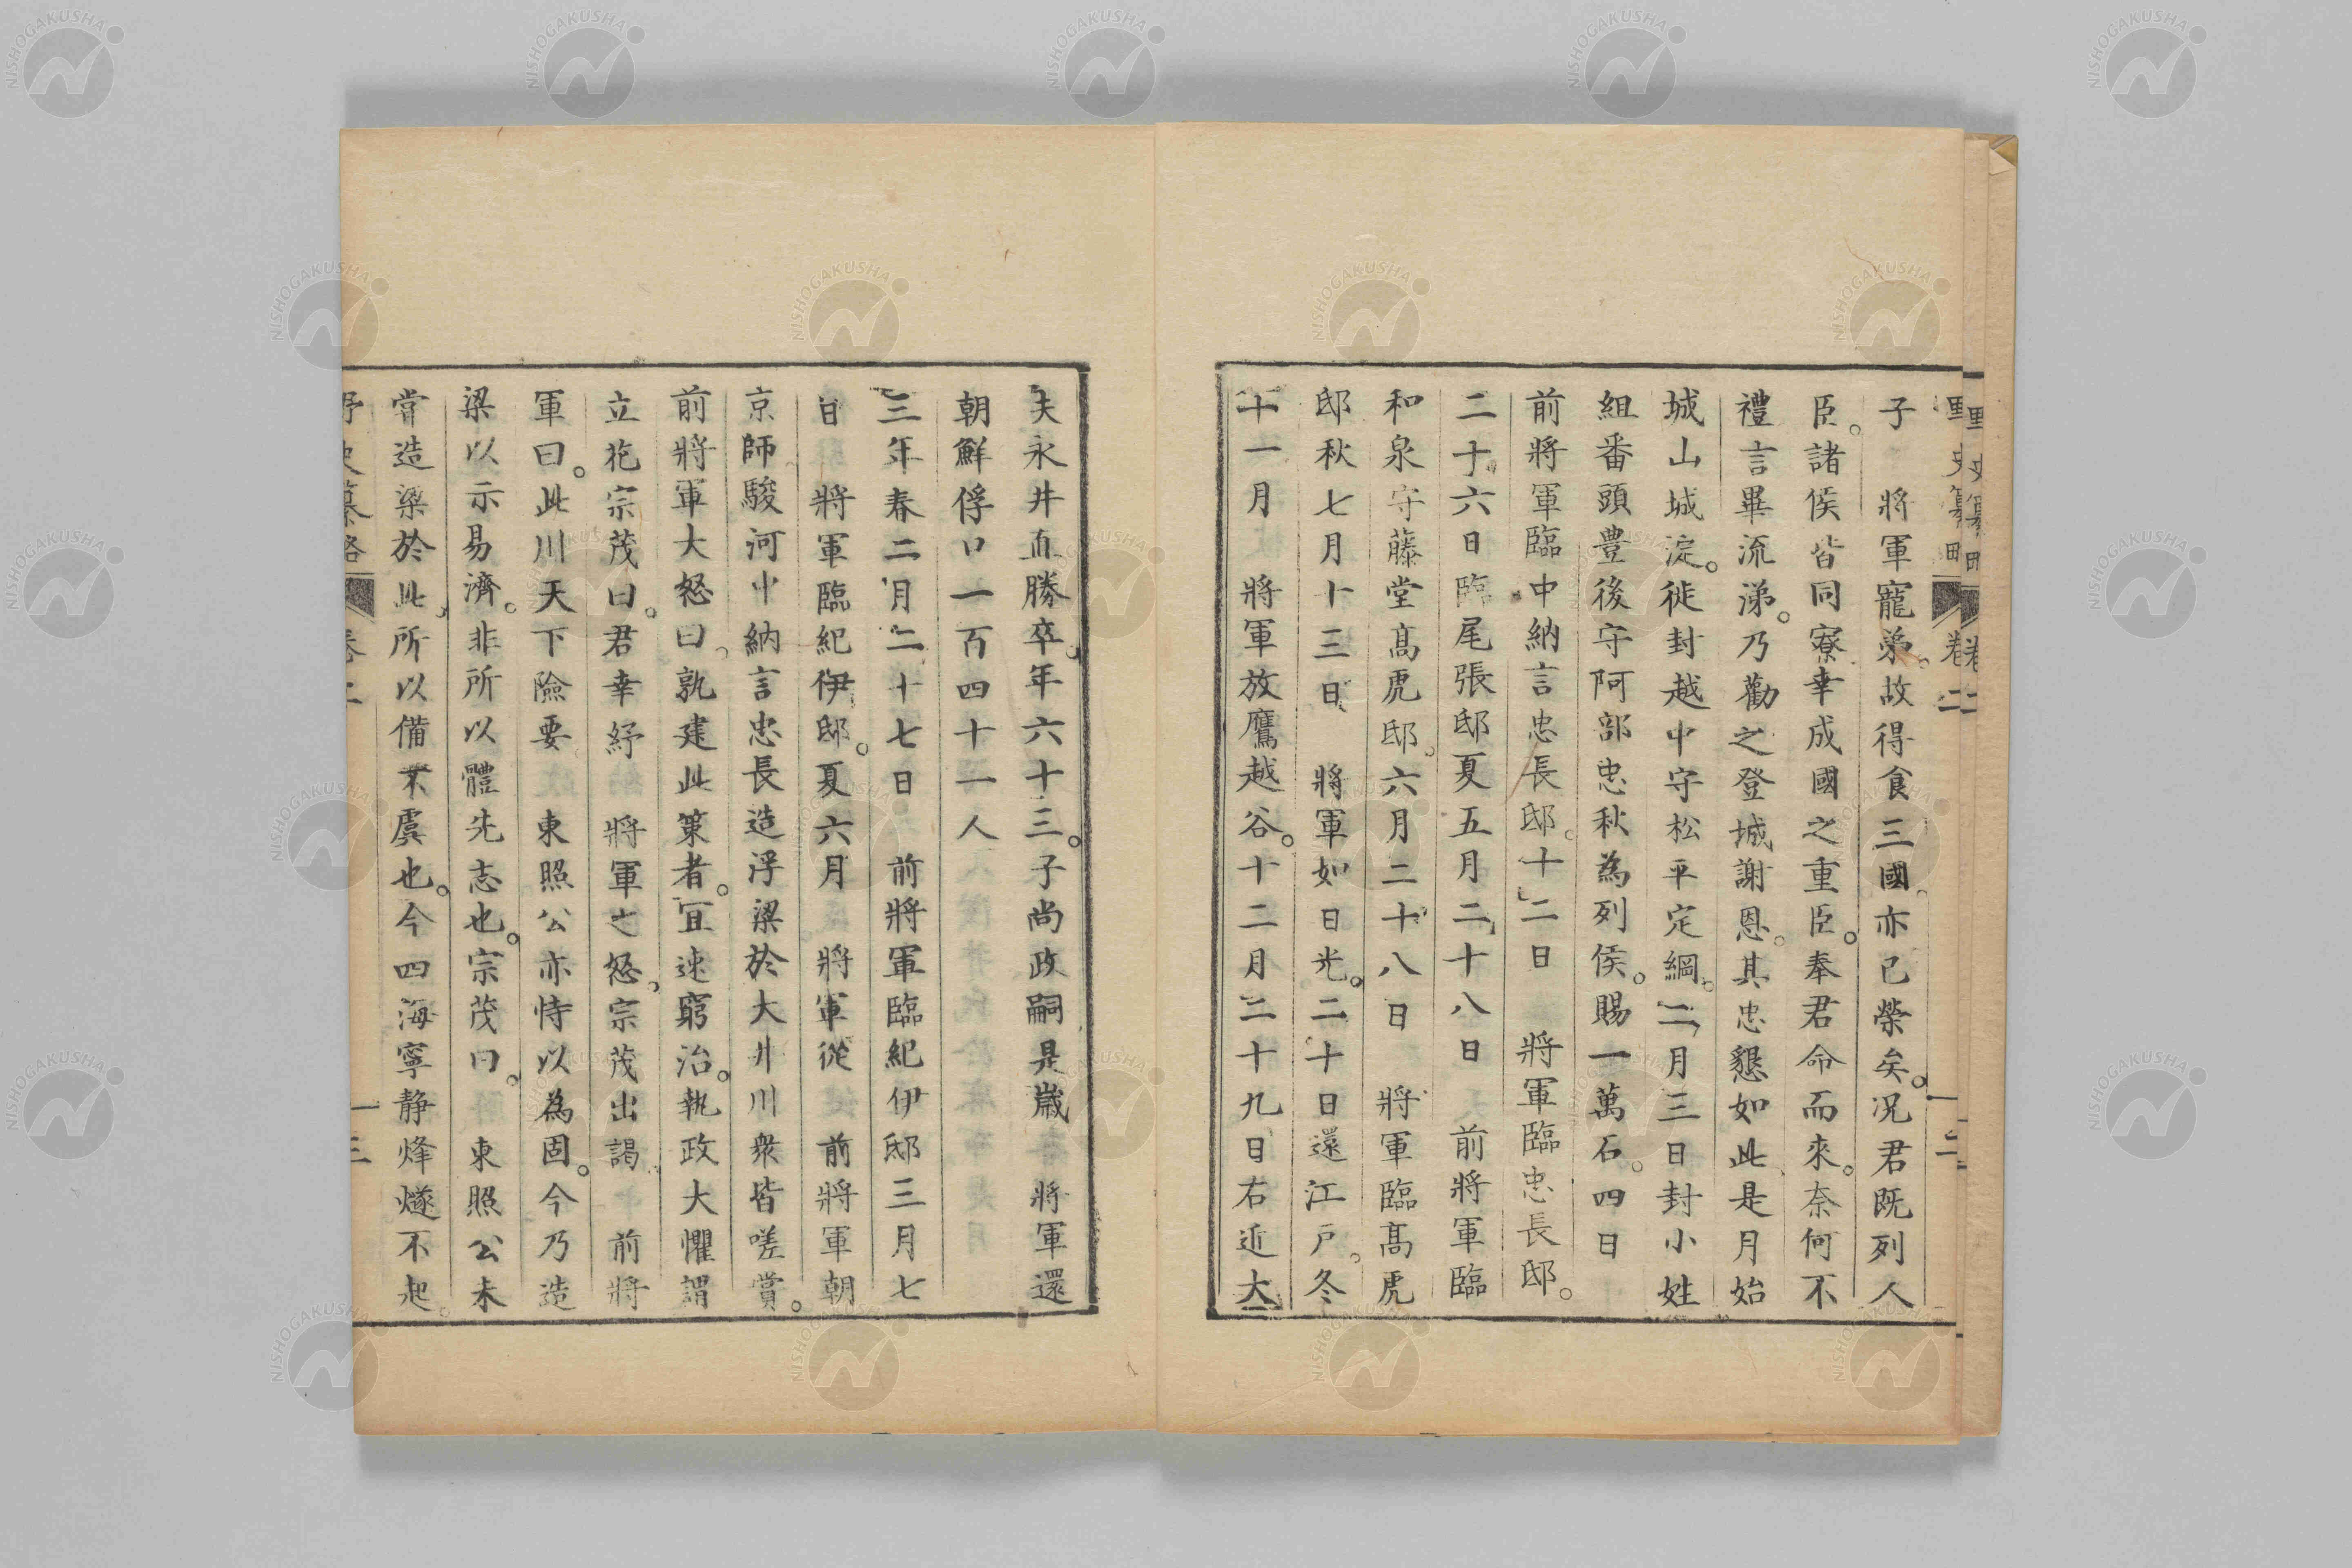 子　將軍寵弟。故得食三國。亦已榮矣。况君既列人
臣。諸侯皆同寮。幸成國之重臣。奉君命而來。奈何不
禮言畢流涕。乃勸之登城謝恩。其忠懇如此是月始
城山城淀。徙封越中守松平定綱。二月三日封小姓
組番頭豊後守阿部忠秋為列侯。賜一萬石。四日
前將軍臨中納言忠長邸。十二日　將軍臨忠長邸。
二十六日臨尾張邸夏五月二十八日　前將軍臨
和泉守藤堂高虎邸。六月二十八日　將軍臨高虎
邸秋七月十三日　將軍如日光。二十日還江戸。冬
十一月　將軍放鷹越谷。十二月二十九日右近大
夫永井直勝卒年六十三。子尚政嗣是歳　將軍還
朝鮮俘口一百四十一人
三年春二月二十七日　前將軍臨紀伊邸三月七
日　將軍臨紀伊邸。夏六月　將軍從　前將軍朝
京師駿河中納言忠長造浮梁於大井川衆皆嗟賞。
前將軍大怒曰。孰建此策者。宜速窮治。執政大懼謂
立花宗茂曰。君幸紓　將軍之怒。宗茂出謁　前將
軍曰。此川天下險要　東照公亦恃以為固。今乃造
梁以示易濟。非所以體先志也。宗茂曰。　東照公未
嘗造梁於此。所以備不虞也。今四海寧静烽燧不起。
野史纂略　卷二　十三
NISHOGAKUSHA